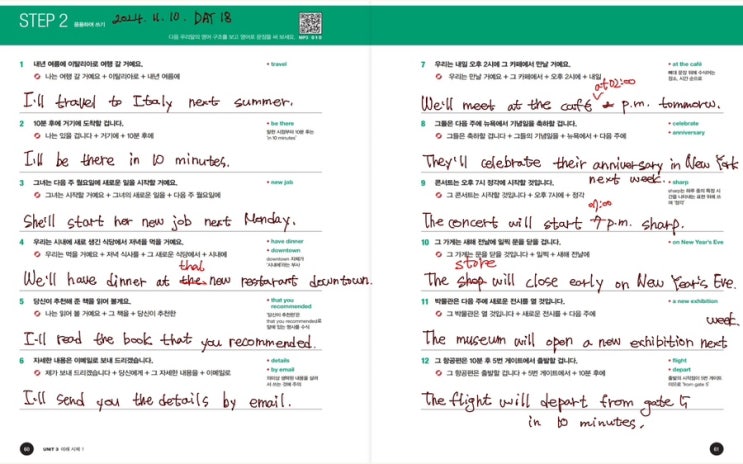 STEP 2 응용하여 쓰기 2024. 11. 10. DAY 18
다음 우리말의 영어 구조를 보고 영어로 문장을 써 보세요. MP3 010
1 내년 여름에 이탈리아로 여행 갈 거예요.
• travel
나는 여행 갈 거예요 + 이탈리아로 + 내년 여름에
I'll travel to Italy next summer.
2 10분 후에 거기에 도착할 겁니다.
• be there
나는 있을 겁니다 + 거기에 + 10분 후에
'in 10 minutes'
I'll be there in 10 minutes.
3 그녀는 다음 주 월요일에 새로운 일을 시작할 거예요.
• new job
그녀는 시작할 거예요 + 그녀의 새로운 일을 + 다음 주 월요일에
She'll start her new job next Monday.
4 우리는 시내에 새로 생긴 식당에서 저녁을 먹을 거예요.
• have dinner
• downtown
우리는 먹을 거예요 + 저녁 식사를 + 그 새로운 식당에서 + 시내에
downtown 자체가 '시내에'라는 부사
that
We'll have dinner at the new restarant downtown.
5 당신이 추천해 준 책을 읽어 볼게요.
• that you recommended
나는 읽어 볼 거예요 + 그 책을 + 당신이 추천한
'당신이 추천한'은 that you recommended로 앞에 있는 명사를 수식
I'll read the book that you recommended.
6 자세한 내용은 이메일로 보내 드리겠습니다.
• details
• by email
제가 보내 드리겠습니다 + 당신에게 + 그 자세한 내용을 + 이메일로
I'll send you the details by email.
60 UNIT 3 미래 시제 1
7 우리는 내일 오후 2시에 그 카페에서 만날 거예요.
• at the café
우리는 만날 거예요 + 그 카페에서 + 오후 2시에 + 내일
at 02:00
We'll meet at the café 2 p.m. tomorrow.
8 그들은 다음 주에 뉴욕에서 기념일을 축하할 겁니다.
• celebrate
• anniversary
그들은 축하할 겁니다 + 그들의 기념일을 + 뉴욕에서 + 다음 주에
They'll celebrate their anniversary in New York
next week.
9 콘서트는 오후 7시 정각에 시작할 것입니다.
• sharp
그 콘서트는 시작할 것입니다 + 오후 7시에 + 정각
07:00
The concert will start 7 p.m. sharp.
10 그 가게는 새해 전날에 일찍 문을 닫을 겁니다.
• on New Year's Eve
그 가게는 문을 닫을 겁니다 + 일찍 + 새해 전날에
store
The shop will close early on New Year's Eve.
11 박물관은 다음 주에 새로운 전시를 열 것입니다.
• a new exhibition
그 박물관은 열 것입니다 + 새로운 전시를 + 다음 주에
The museum will open a new exhibition next
week.
12 그 항공편은 10분 후 5번 게이트에서 출발할 겁니다.
• flight
• depart
그 항공편은 출발할 겁니다 + 5번 게이트에서 + 10분 후에
The flight will depart from gate 5
in 10 minutes.
61